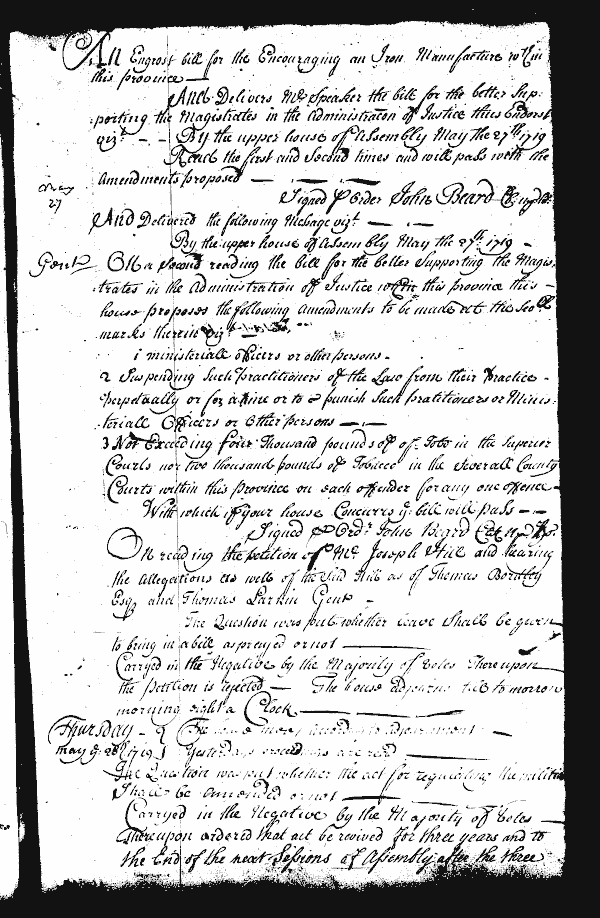 An Engrost bill for the Encouraging an Iron Manufacture wthin
this province —
And Delivers Mr Speaker the bill for the better Sup-
porting the Magistrates in the Administracon of Justice thus Endorst
vizt — — By the upper house of Assembly May the 27th 1719
Read the first and Second times and will pass with the
Amendments proposed — — — —
May
27
Signed P Order John Beard
And Delivered the following Message vizt — — —
By the upper house of Assembly May the 27th 1719 —
Gentn On a Second reading the bill for the better Supporting the Magis-
trates in the Administration of Justice wthin this province this
house proposes the following Amendments to be made at the
marks therein vizt
1 ministeriall officers or other persons —
2 Suspending Such Practitioners of the Law from their Practice —
perpetually or for a time or to punish Such Pratitioners or Minis-
teriall Officers or Other persons — — —
3 Not Exceeding four Thousand pounds of Tobo in the Superior
Courts nor two thousand pounds of Tobacco in the Severall County
Courts within this Province on each offender for any one offence —
With which if your house Concurrs ye bill will pass — —
Signed P Ordr John Beard
On reading the petition of Mr Joseph Hill and hearing
the allegations as well of the Said Hill as of Thomas Bordley
Esqr and Thomas Larkin Gent —
The Question was put whether leave Shall be given
to bring in a bill as prayed or not —
Carryed in the Negative by the Majority of Votes Thereupon
the Petition is rejected — The house adjourns till to morrow
morning eight a Clock —
Thursday —
May ye 28 1719
The house meet according to adjournment —
Yesterdays proceedings are read —
The Question was put whether the act for regulating the militia
Shall be amended or not —
Carryed in the Negative by the Majority of Votes —
Thereupon ordered that act be revived for three years and to
the End of the next Sessions of Assembly after the three